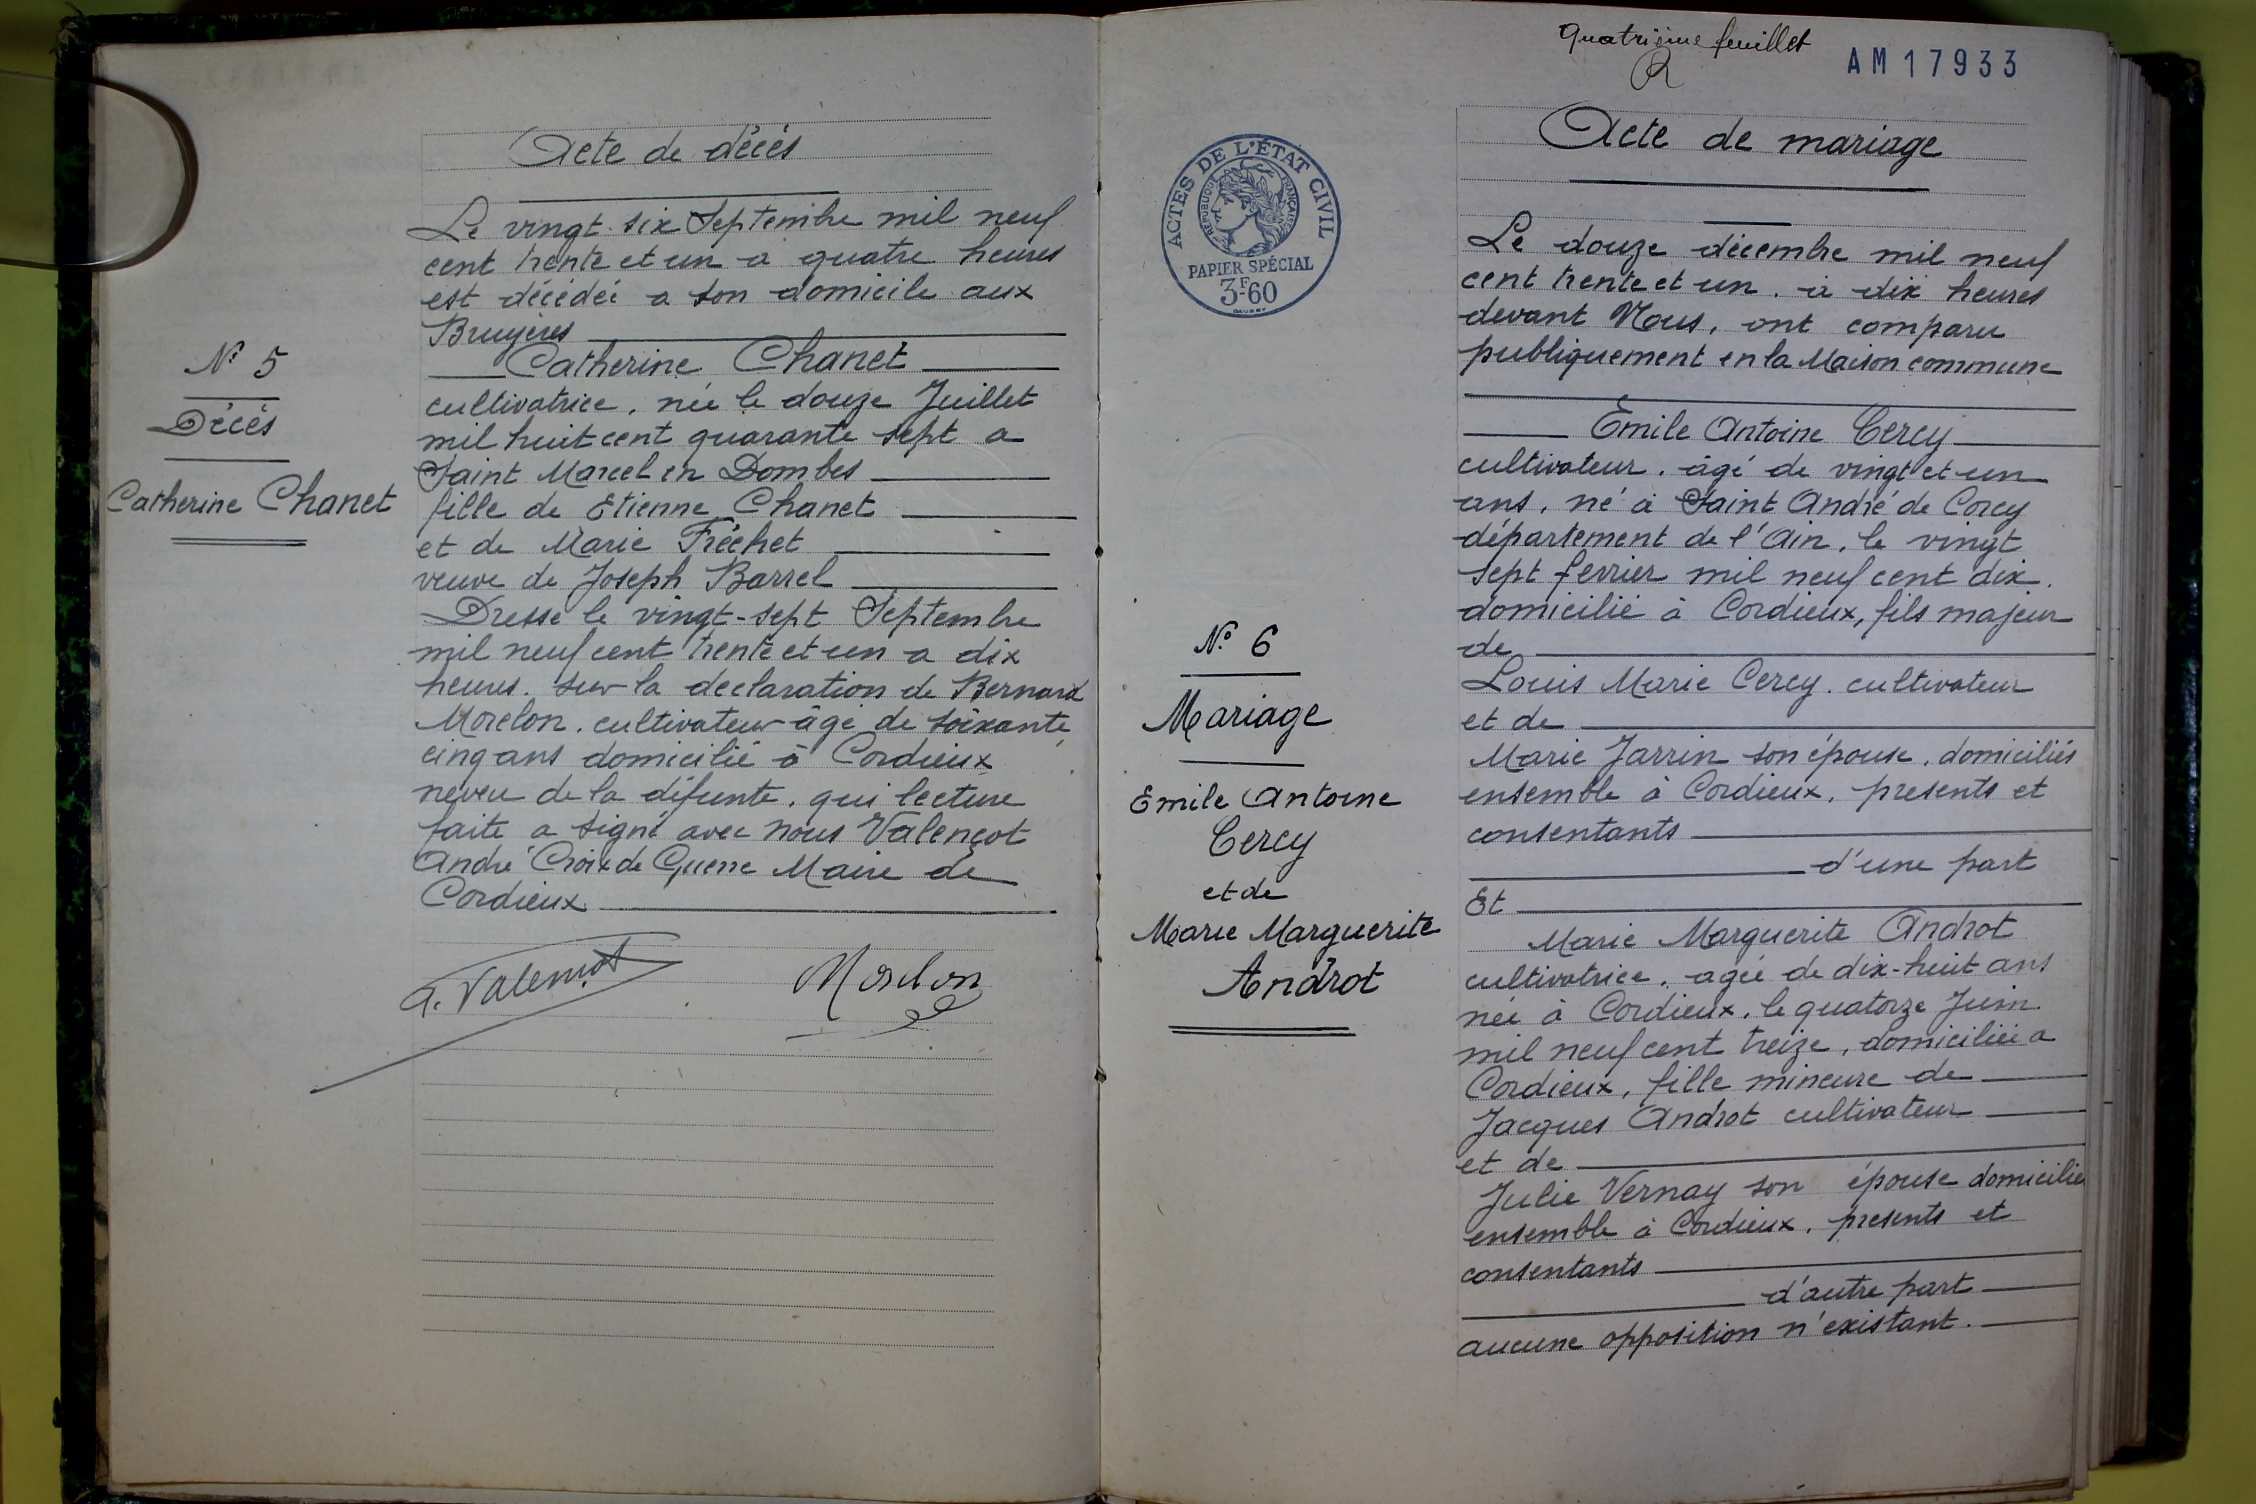 Acte de décès
Le vingt-six Septembre mil neuf
cent trente et un a quatre heures
est décédée a son domicile aux
Bruyères
Catherine Chanet
cultivatrice, née le douze Juillet
mil huit cent quarante sept a
Saint Marcel en Dombes
fille de Etienne Chanet
et de Marie Fréchet
veuve de Joseph Barrel
Dressé le vingt-sept Septembre
mil neuf cent trente et un a dix
heures. sur la declaration de Bernard
Morelon. cultivateur âgé de soixante
cinq ans domicilié à Cordieux
neveu de la défunte. qui lecture
faite a signé avec nous Valençot
André Croix de Guerre Maire de
Cordieux
A. Valençot
Morelon
N° 5
Décès
Catherine Chanet
quatrième feuillet
AM17933
ACTES DE L'ÉTAT CIVIL
RÉPUBLIQUE FRANÇAISE
PAPIER SPÉCIAL
3F-60
N° 6
Mariage
Emile Antoine
Cercy
et de
Marie Marguerite
Androt
Acte de mariage
Le douze décembre mil neuf
cent trente et un. à dix heures
devant Nous, ont comparu
publiquement en la Maison commune
Emile Antoine Cercy
cultivateur. âgé de vingt et un
ans, né à Saint André de Corcy
département de l'Ain, le vingt
sept fevrier mil neuf cent dix.
domicilié à Cordieux, fils majeur
de
Louis Marie Cercy. cultivateur
et de
Marie Jarrin son épouse. domiciliés
ensemble à Cordieux, presents et
consentants
d'une part
Et
Marie Marguerite Androt
cultivatrice, agée de dix-huit ans
née à Cordieux, le quatorze Juin
mil neuf cent treize, domiciliée a
Cordieux, fille mineure de
Jacques Androt cultivateur
et de
Julie Vernay son épouse domiciliés
ensemble à Cordieux, presents et
consentants
d'autre part
aucune opposition n'existant.